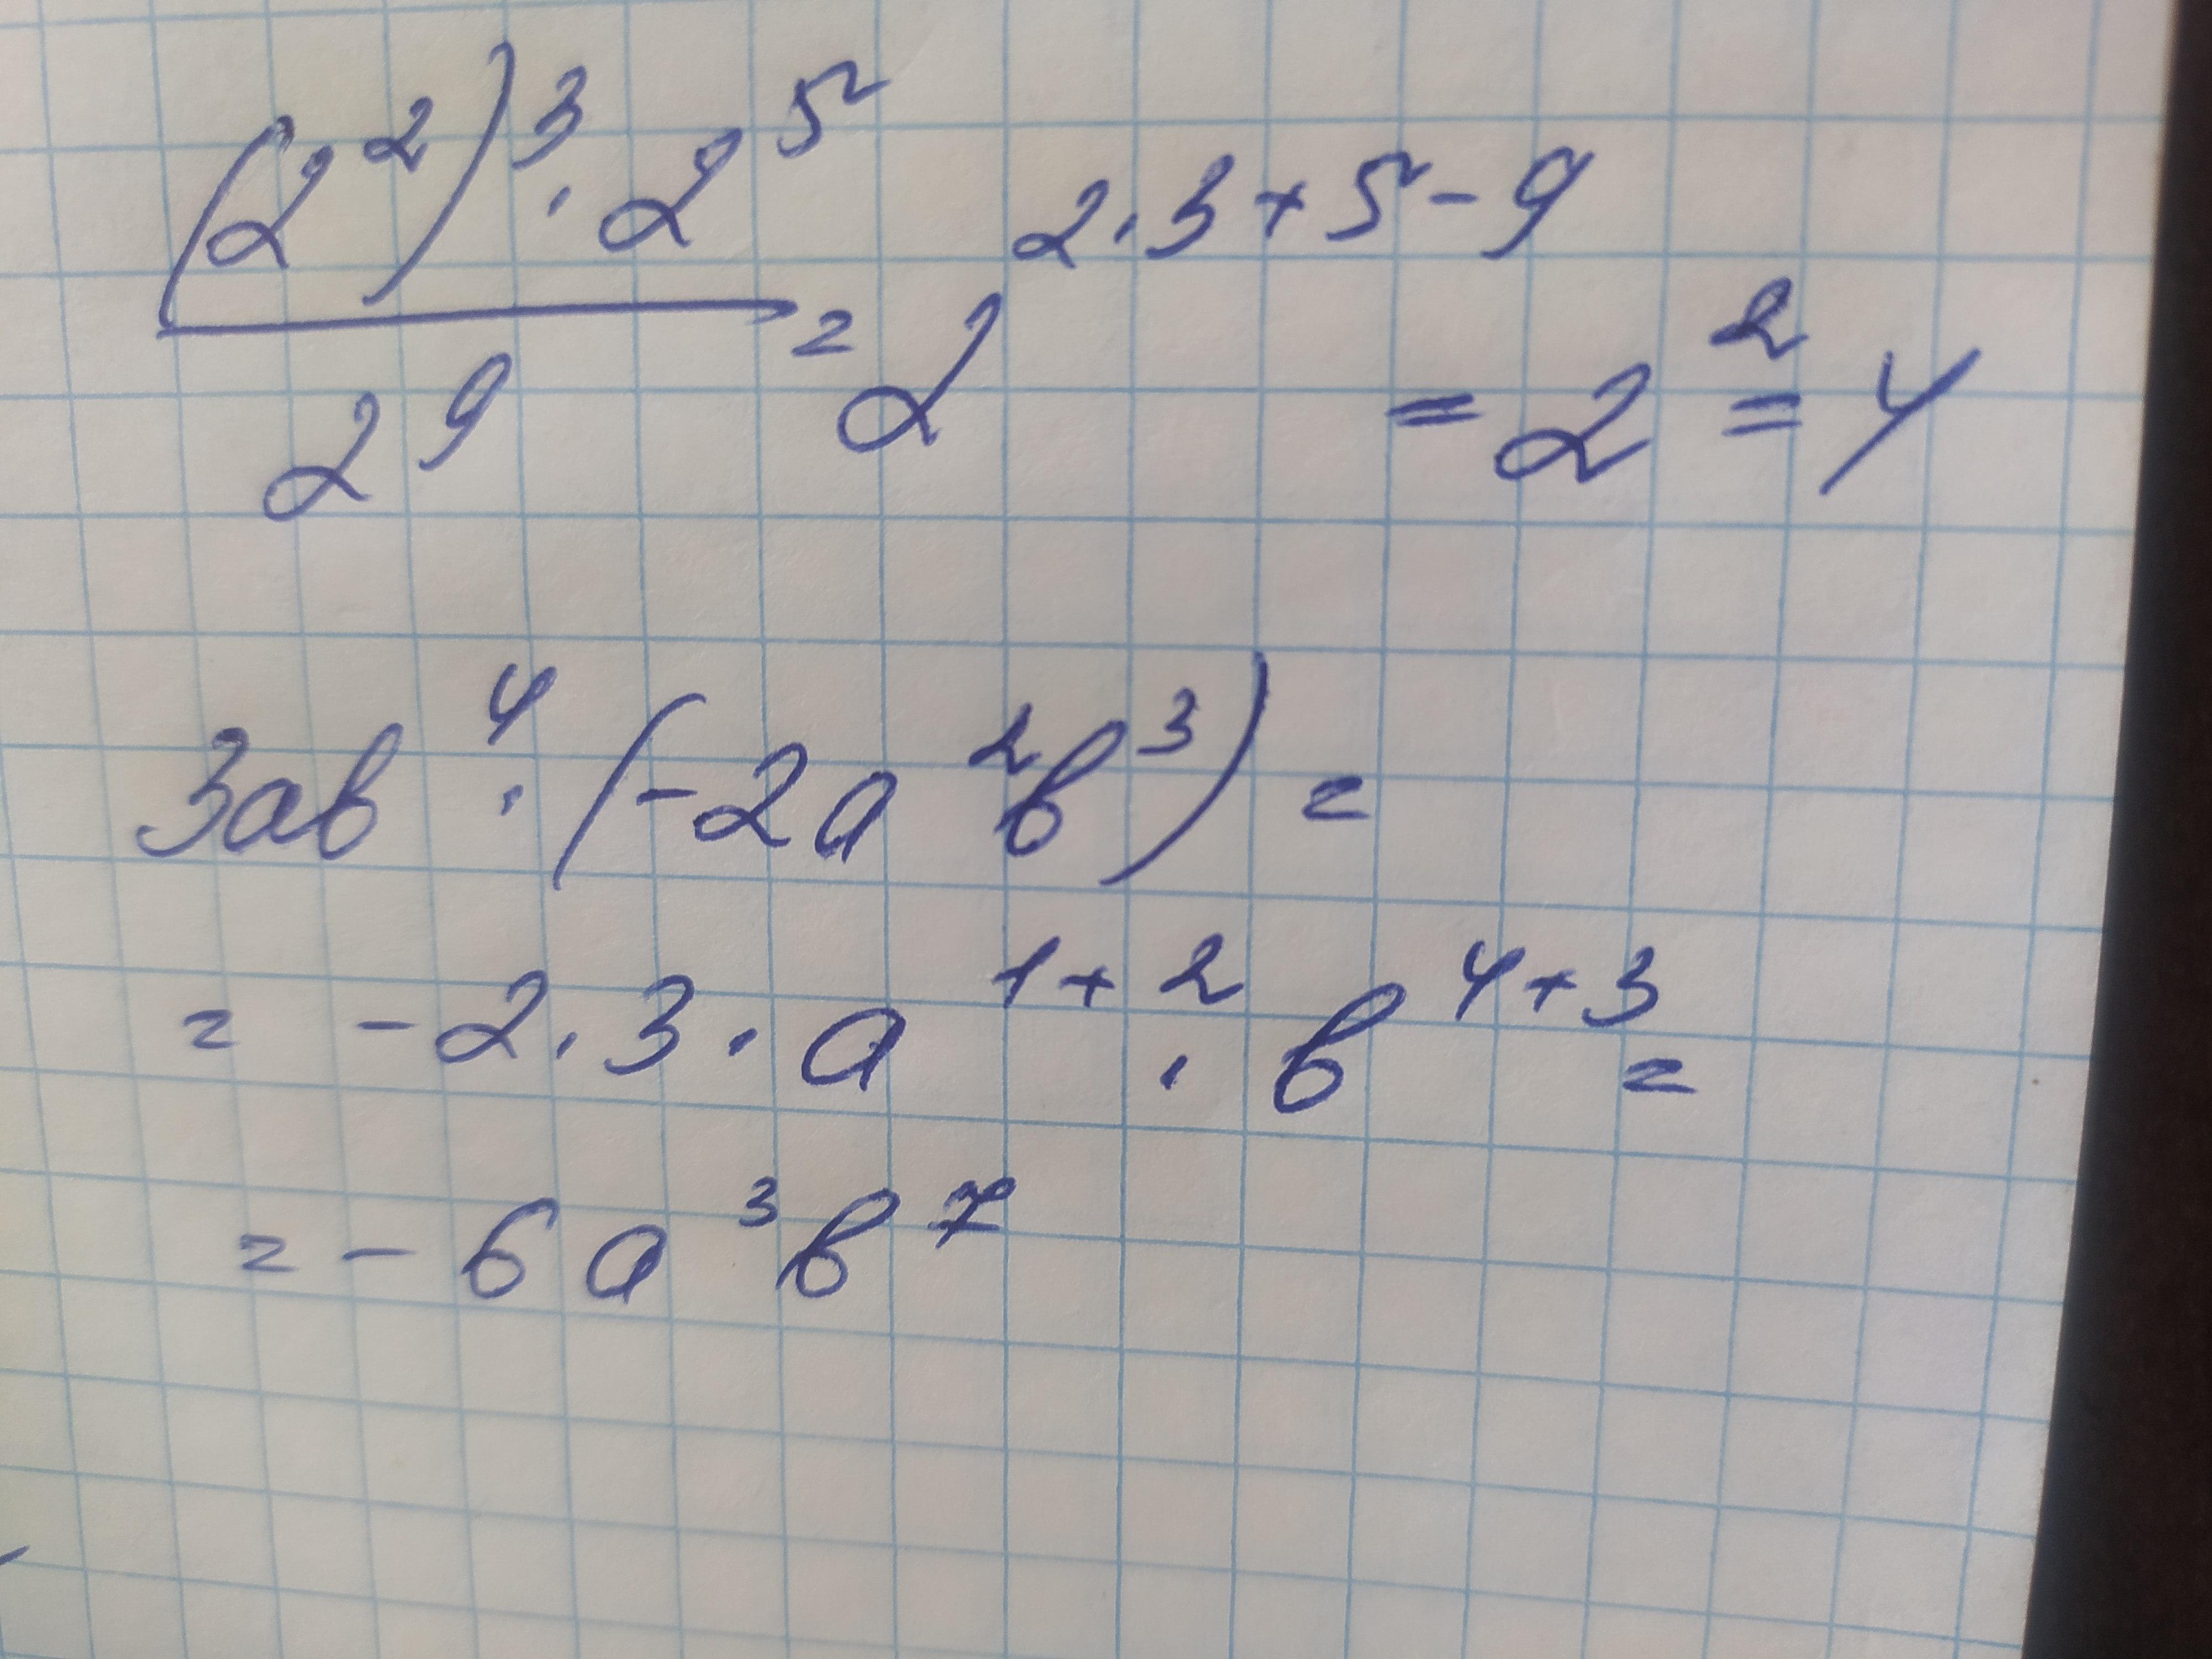 (2²)³ · 2⁵ / 2⁹ = 2^(2·3+5-9) = 2² = 4
3ab⁴ · (-2a²b³) =
= -2 · 3 · a¹⁺² · b⁴⁺³ =
= -6a³b⁷